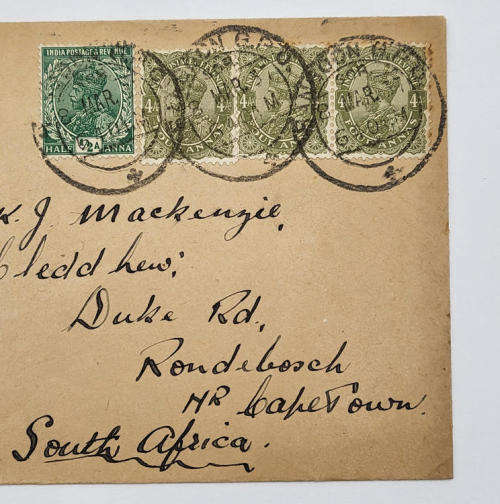 INDIA POSTAGE & REVENUE
HALF ½A ANNA
4A 4A 4A
FOUR ANNAS
RANGOON G.P.O.
MAR.
K. J. Mackenzie,
Cleddhew;
Duke Rd,
Rondebosch
NR CapeTown.
South Africa.